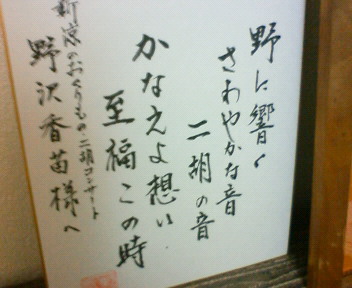 野に響く
さわやかな音
二胡の音
かなえよ想い
至福この時
新涼のおくりもの二胡コンサート
野沢香苗様へ